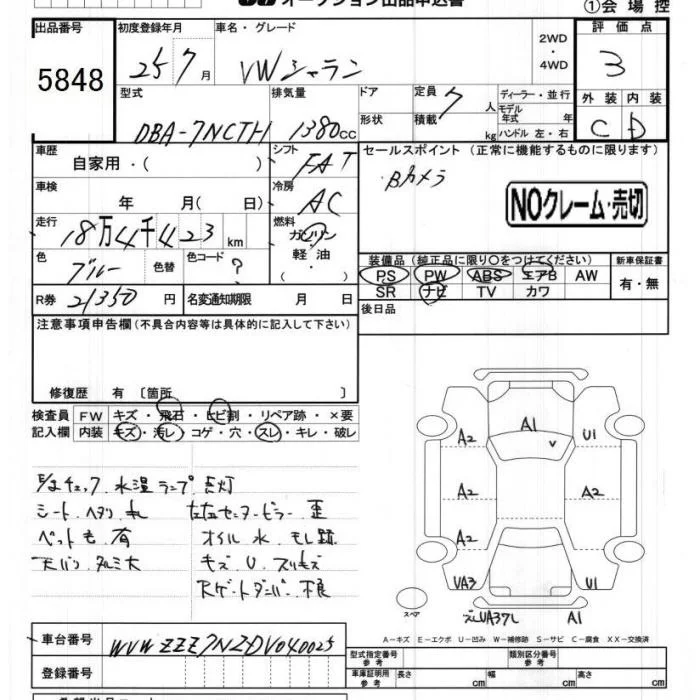 オークション出品申込書
①会場控
出品番号
5848
初度登録年月
25 7月
車名・グレード
VWシャラン
2WD
・
4WD
評価点
3
型式
DBA-7NCTH
排気量
1380cc
ドア
形状
定員
7人
積載
kg
ディーラー・並行
モデル年式 年
ハンドル 左・右
外装 内装
C D
車歴
自家用・( )
シフト
FAT
セールスポイント (正常に機能するものに限ります)
Bカメラ
NOクレーム・売切
車検
年 月( 日)
冷房
AC
走行
18万4千423km
燃料
ガソリン
軽油
( ・ )
色
ブルー
色替
色コード
?
装備品 (純正品に限り○をつけてください)
PS PW ABS エアB AW
SR ナビ TV カワ
新車保証書
有・無
R券
21350円
名変通知期限 月 日
後日品
注意事項申告欄(不具合内容等は具体的に記入して下さい)
修復歴 有 〔箇所 〕
検査員 FW キズ・飛石・ヒビ割・リペア跡・×要
記入欄 内装 キズ・汚レ・コゲ・穴・スレ・キレ・破レ
E/gチェック 水温ランプ 点灯
シート ヘタリ 丸
ペット毛 有
天バリ タルミ大
左右センターピラー 歪
オイル 水 モレ跡
キズ U スリキズ
Rゲートダンパー 不良
A1
A2 U1
A2 A2
A2 A2
UA3 U1
スペア
UA37L A1
A-キズ E-エクボ U-凹み W-補修跡 S-サビ C-腐食 XX-交換済
車台番号
WVWZZZ7NZDV040025
登録番号
型式指定番号
参考
類別区分番号
参考
車庫証明用
参考
長さ cm 幅 cm 高さ cm